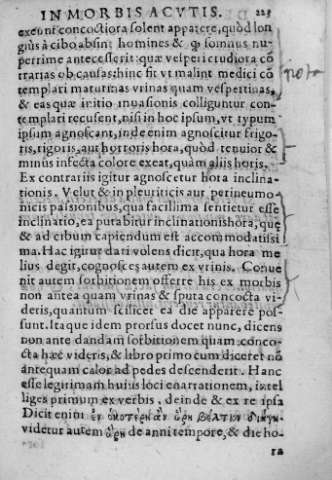 IN MORBIS ACVTIS. 225
exeunt concoctiora solent apparere, quòd lon
giùs à cibo absint homines & q̃ somnus nu-
perrime antecesserit: quæ vesperi crudiora cõ
trarias ob causas: hinc fit vt malint medici cõ
templari maturinas vrinas quam vespertinas,
& eas quæ initio inuasionis colliguntur con-
templari recusent, nisi in hoc ipsum, vt typum
ipsum agnoscant, inde enim agnoscitur frigo-
ris, rigoris, aut horroris hora, quòd tenuior &
minùs infecta colore exeat, quàm aliis horis.
Ex contrariis igitur agnoscetur hora inclina-
tionis. Velut & in pleuriticis aut perineumo-
nicis passionibus, qua facillima sentietur esse
inclinatio, ea putabitur inclinationis hora, quę
& ad cibum capiendum est accommodatissi
ma. Hac igitur dari volens dicit, qua hora me
lius degit, cognosces autem ex vrinis. Conue
nit autem sorbitionem offerre his ex morbis
non antea quam vrinas & sputa concocta vi
deris, quantum scilicet ea die apparere pos-
sunt. Itaque idem prorsus docet nunc, dicens
non ante dandam sorbitionem quàm conco-
cta hæc videris, & libro primo cum diceret nõ
antequam calor ad pedes descenderit. Hanc
esse legitimam huius loci enarrationem, intel
liges primum ex verbis, deinde & ex re ipsa
Dicit enim ἐν ὁποτέρῃ ἂν ὥρῃ βέλτιον
videtur autem ὥρῃ de anni tempore, & die ho-
ra
nota